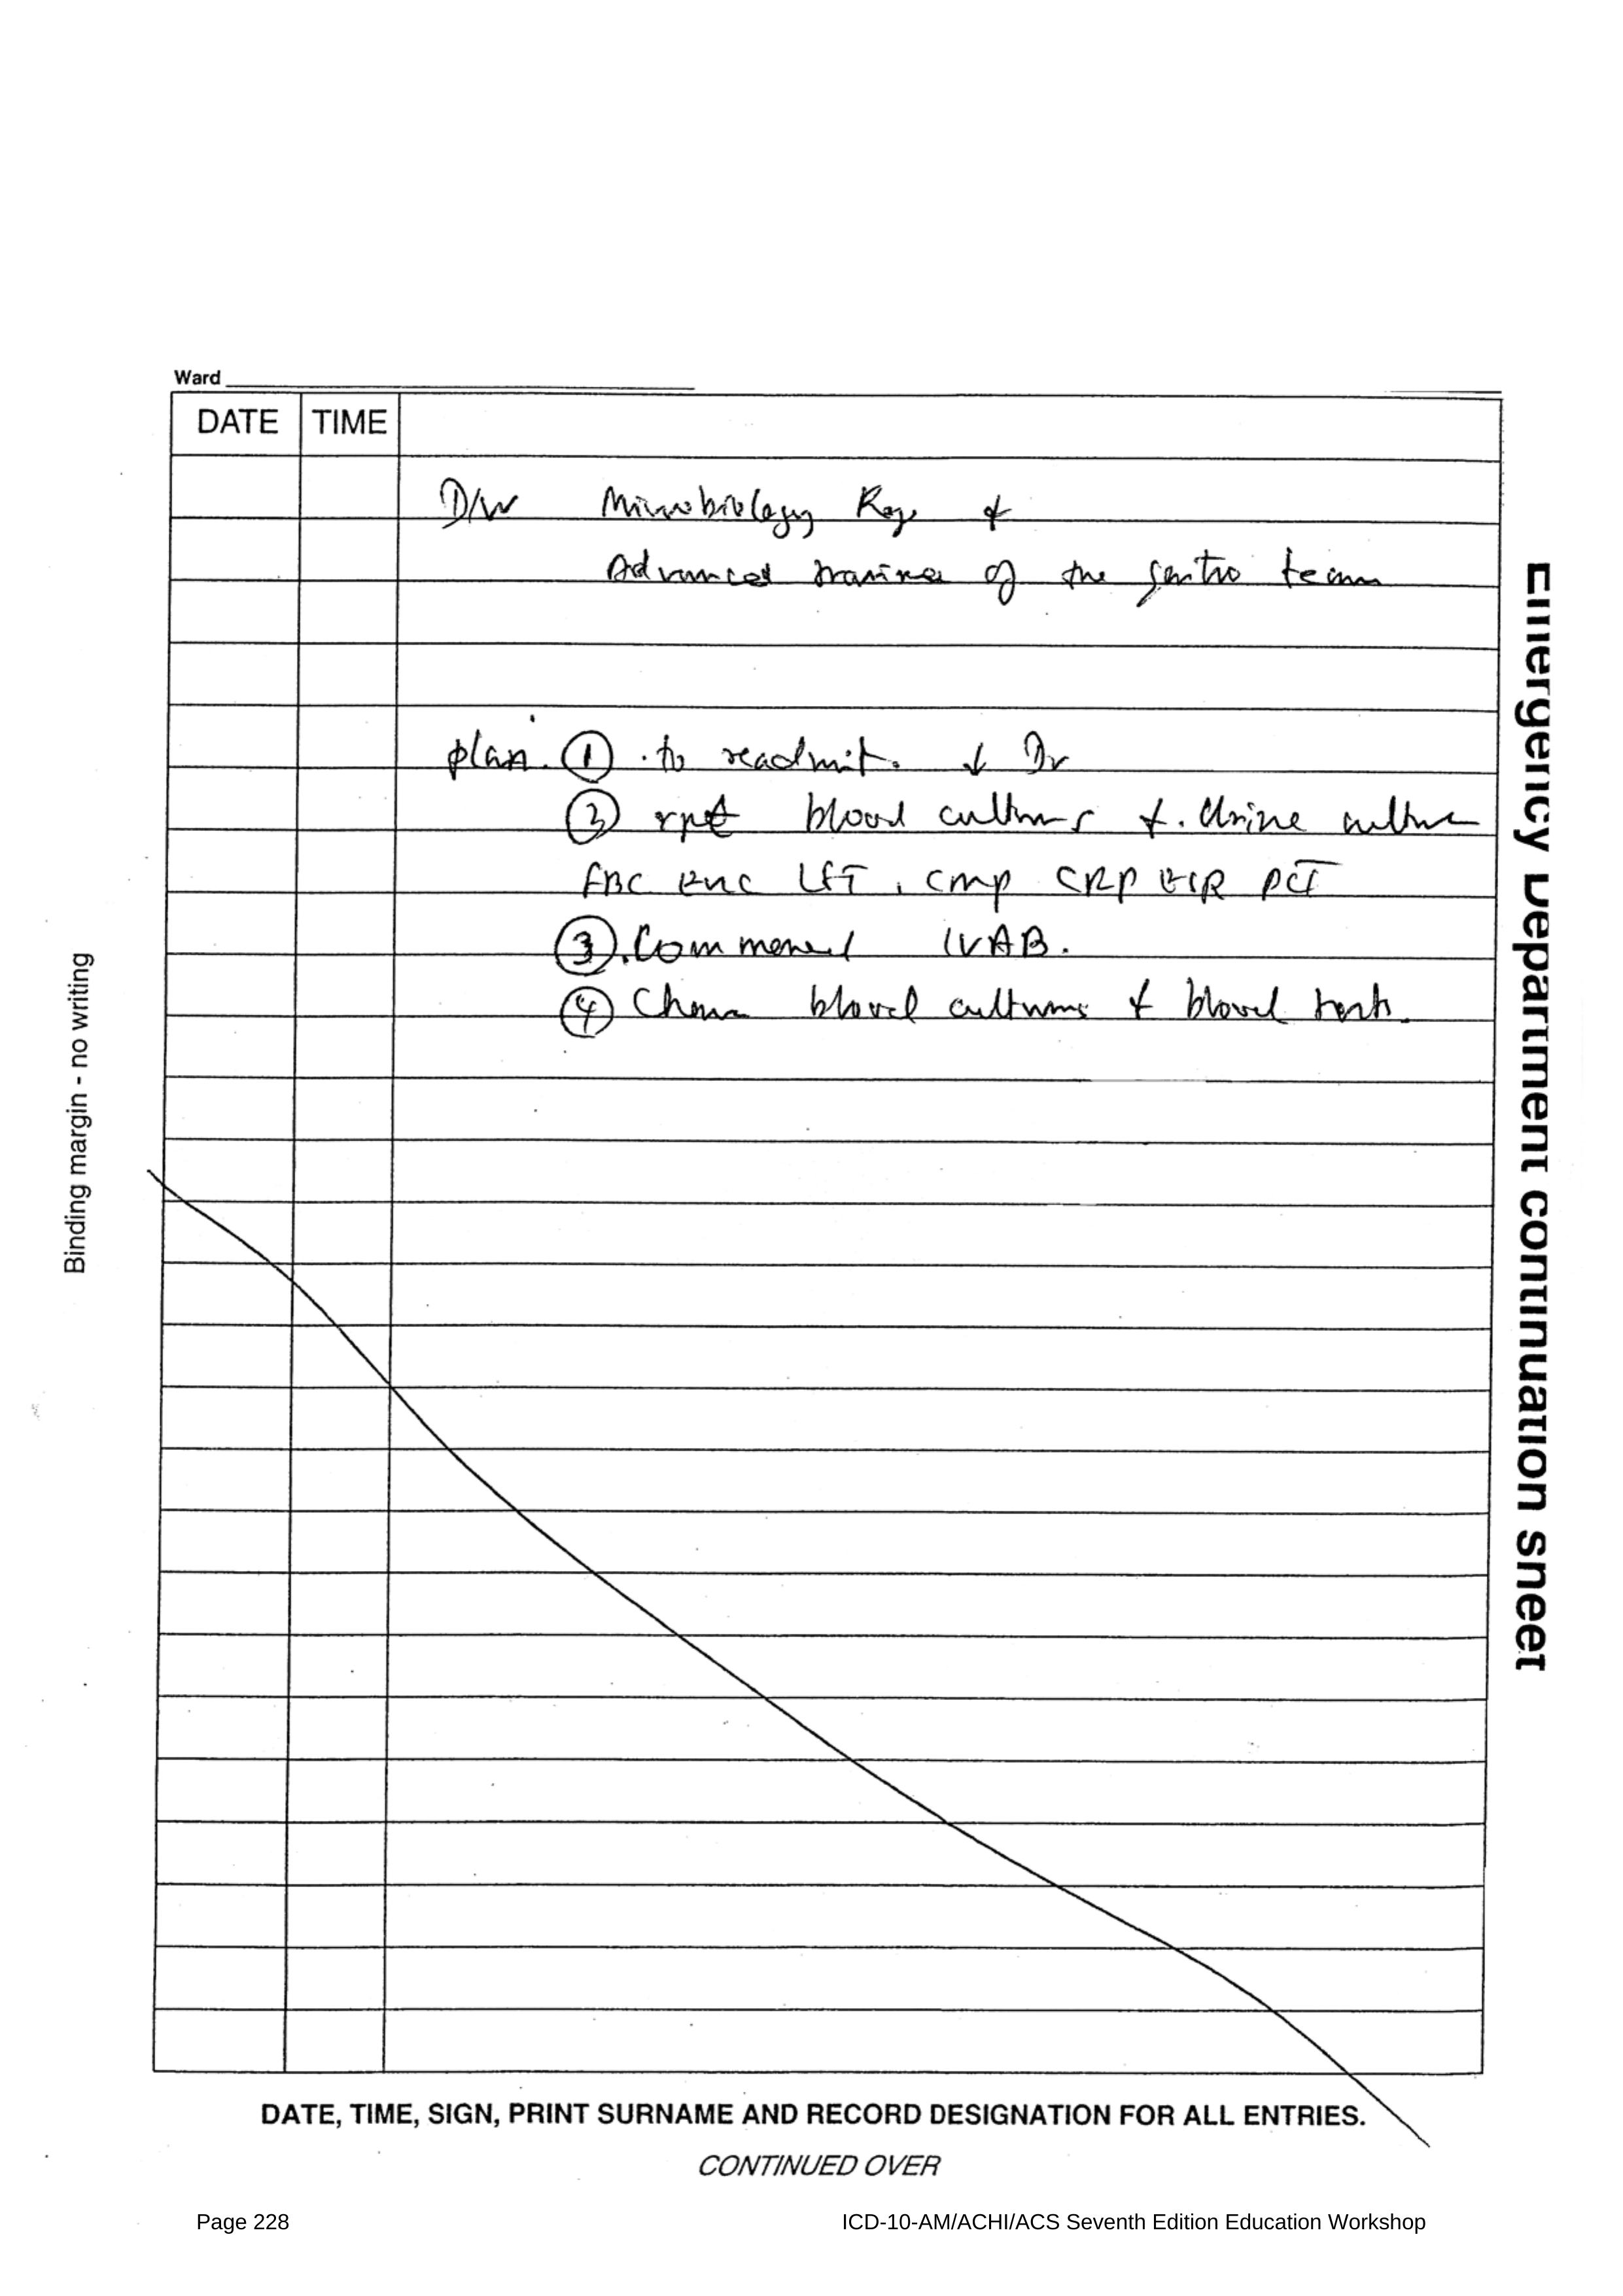 Ward
DATE TIME
D/W Microbiology Reg &
Advanced trainee of the gastro team
plan. ① to readmit. ↓ Dr
② rpt blood cultures &. Urine culture
FBC EUC LFT, CMP CRP ESR PCT
③. Commenced IVAB.
④ Chase blood cultures & blood tests.
Binding margin - no writing
Emergency Department continuation sheet
DATE, TIME, SIGN, PRINT SURNAME AND RECORD DESIGNATION FOR ALL ENTRIES.
CONTINUED OVER
Page 228 ICD-10-AM/ACHI/ACS Seventh Edition Education Workshop